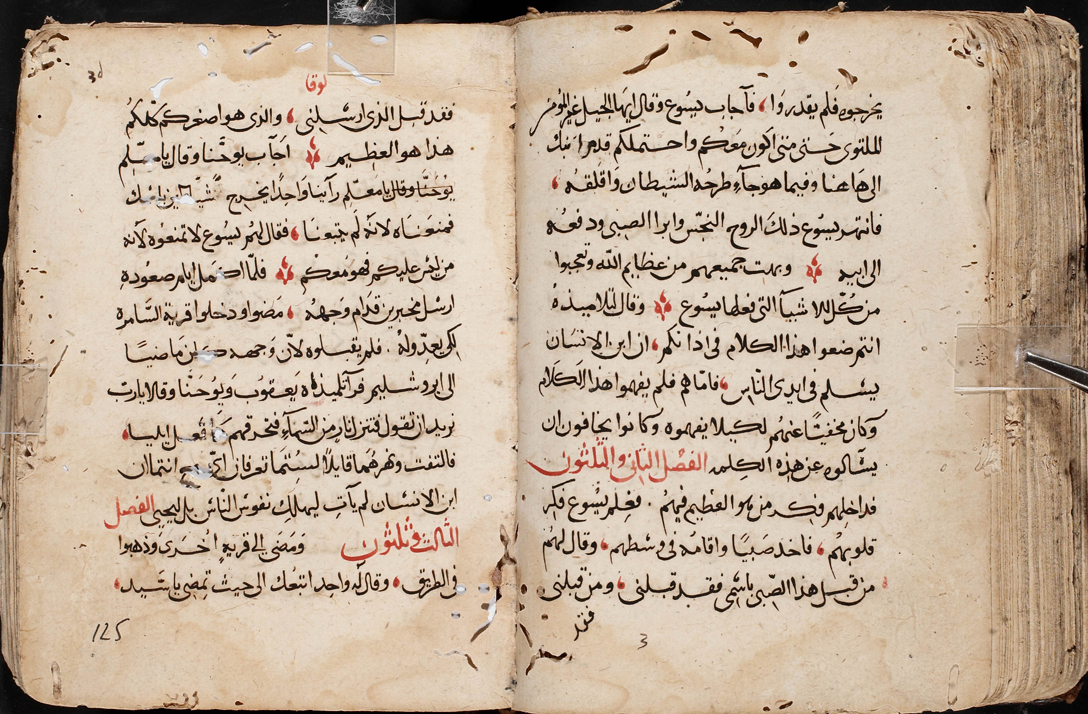 يخرجوه فلم يقدروا، فأجاب يسوع وقال ايها الجيل غير المومن
الملتوى حتى متى اكون معكم واحتملكم قدم ابنك
الى هاهنا وفيما هو جآء طرحه الشيطان واقلقه،
فانتهر يسوع ذلك الروح النجس وابرا الصبى ودفعه
الى ابيه وبهت جميعهم من عظايم الله وتعجبوا
من كل الاشيآ التى فعلها يسوع وقال لتلاميذه
انتم ضعوا هذا الكلام فى اذانكم، ان ابن الانسان
يسلم فى ايدى الناس، فاما هم فلم يفهموا هذا الكلام
وكان مخفيًا عنهم لكيلا يفهموه وكانوا يخافون ان
يسالوه عن هذه الكلمه الفصل الثانى والثلثون
فداخلهم فكر من هو العظيم فيهم . فعلم يسوع فكر
قلوبهم، فاخد صبيًا واقامه فى وسطهم، وقال لهم
من قبل هذا الصبى باسمى فقد قبلنى، ومن قبلنى
فقد
3
3d
لوقا
فقد قبل الذى ارسلنى، والذى هو اصغركم كلكم
هذا هو العظيم اجاب يوحنا وقال يا معلم
يوحنا وقال يا معلم راينا واحدًا يخرج باسمك
فمنعناه لانه لم يتبعنا، فقال لهم يسوع لا تمنعوه لانه
من ليس عليكم فهو معكم فلما اكمل ايام صعوده
ارسل مخبرين قدام وجهه، مضوا ودخلوا قرية السامره
لكى يعدوا له . فلم يقبلوه لان وجهه كان ماضيًا
الى ايروشليم فرآ تلميذاه يعقوب ويوحنا وقالا يارب
تريد ان نقول فتنزل نار من السمآء فتحرقهم كما فعل ايليا،
فالتفت ونهرهما قايلًا لستما تعرفان اى روح انتما ان
ابن الانسان لم يأت ليهلك نفوس الناس بل ليحيى الفصل
الثالث وثلثون ومضى الى قرية اخرى وذهبوا
فى الطريق، وقال له واحد اتبعك الى حيث تمضى يا سيد،
125